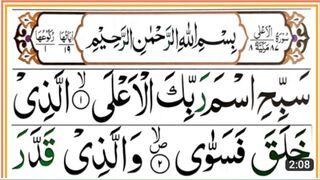 سُورَةُ الْأَعْلٰى ٨٧ مَكِّيَّةٌ ٨ بِسْمِ اللّٰهِ الرَّحْمٰنِ الرَّحِيْمِ اٰيَاتُهَا ١٩ رُكُوْعُهَا ١
سَبِّحِ اسْمَ رَبِّكَ الْاَعْلَى ۙ﴿١﴾ الَّذِیْ
خَلَقَ فَسَوّٰى ۪ۙ﴿٢﴾ وَالَّذِیْ قَدَّرَ
2:08